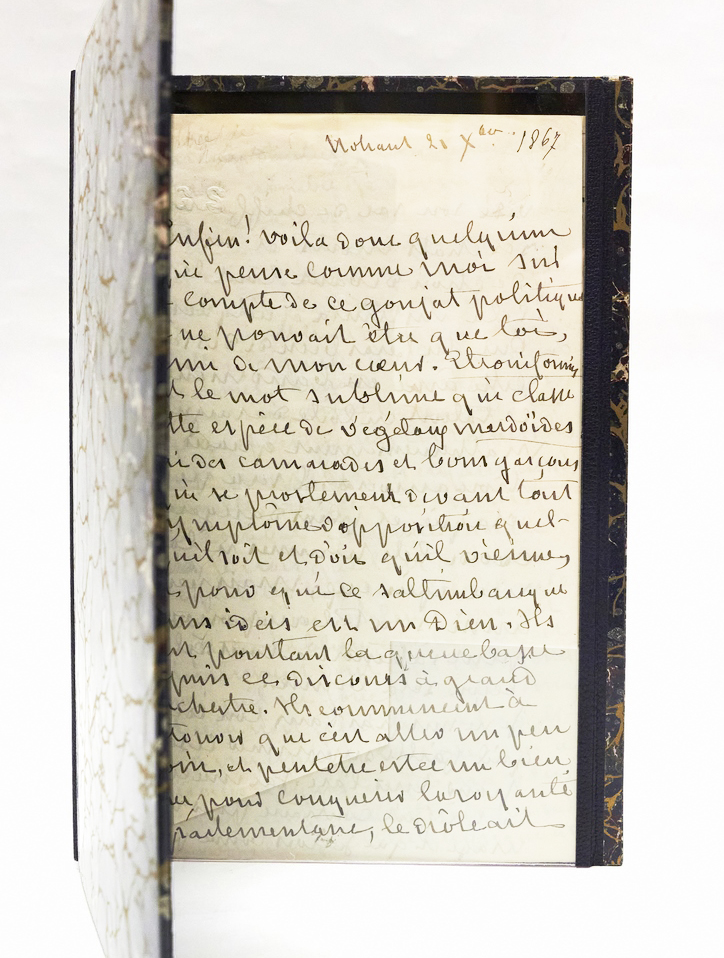 Nohant 21 Xbre 1867
Enfin! voila donc quelqu'un
qui pense comme moi sur
compte de ce goujat politique
ne pouvait être que toi,
ami de mon cœur. Etroniformes
le mot sublime qui classe
tte espèce de végétaux merdoïdes
ai des camarades et bons garçons
qui se prosternent devant tout
symptôme d'opposition quel-
qu'il soit et d'où qu'il vienne,
pour qui ce saltimbanque
ans idées est un Dieu. Ils
nt pourtant la queue basse
puis ce discours à grand
chestre. Ils commencent à
trouver que c'est aller un peu
oin, et peutetre estce un bien
que pour conquerir la royauté
parlementaire, le drôle ait